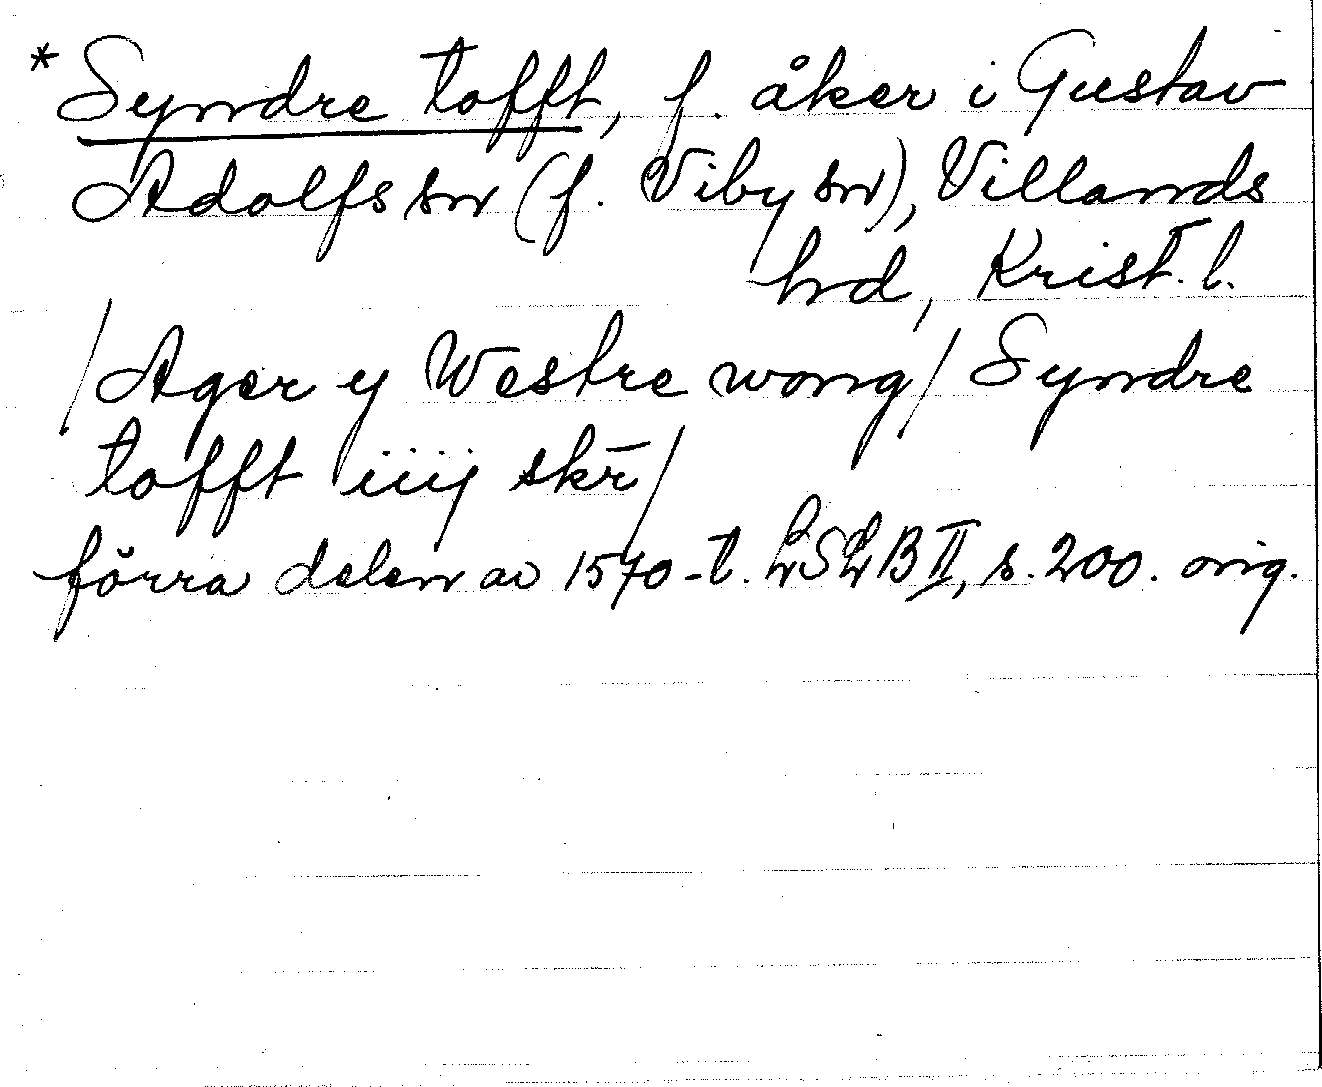 *Syndre tofft, f. åker i Gustav
Adolfs sn (f. Viby sn), Villands
hd, Krist. l.
/Ager y Westre wong/ Syndre
tofft iiij skr̄/
förra delen av 1570-t. LSLB II, s. 200. orig.